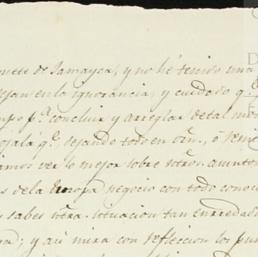 mete de Jamayca, y no hé tenido una
dejan en la ignorancia, y cuidado q.e
mpo p.a concluir y arreglar de tal mo
ojalá q.e dejando todo en
amos ver lo mejor sobre ntros. asuntos
s de la Europa negocio con todo conoci
sabes ntra. situacion tan enredada
; y asi mira con refleccion los pun